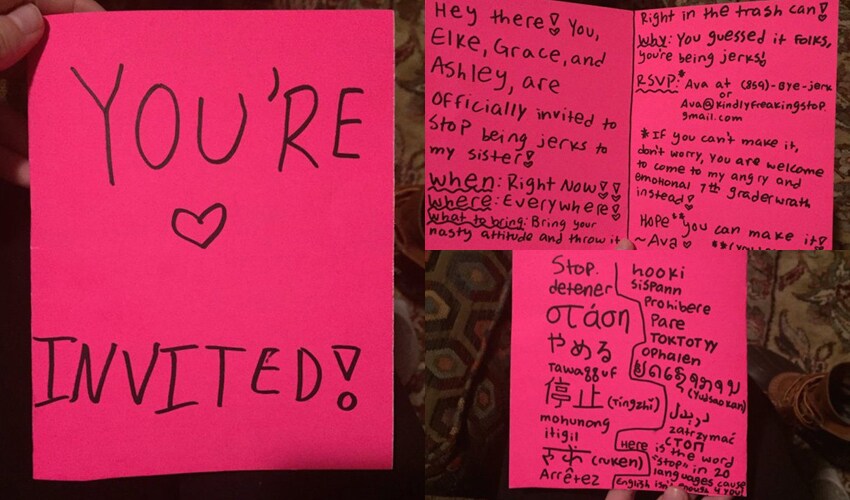 YOU'RE
INVITED!
Hey there! You,
Elke, Grace, and
Ashley, are
officially invited to
stop being jerks to
my sister!
When: Right Now!!
Where: Everywhere!
What to bring: Bring your
nasty attitude and throw it
Right in the trash can!
Why: You guessed it folks,
you're being jerks!
RSVP:* Ava at (859)-Bye-jerk
or
Ava@kindlyfreakingstop.
gmail.com
*If you can't make it,
don't worry, you are welcome
to come to my angry and
emotional 7th grader wrath
instead!
Hope** you can make it!
~Ava
Stop.
detener
στάση
やめる
Tawaqquf
停止 (Tingzhi)
mohunong
itigil
(ruken)
Arrêtez
hooki
sispann
Prohibere
Pare
TOKTOTYY
Ophalen
(Yudsaokan)
zatrzymać
стоп
Here is the word
"stop" in 20
languages cause
English isn't enough 4 you